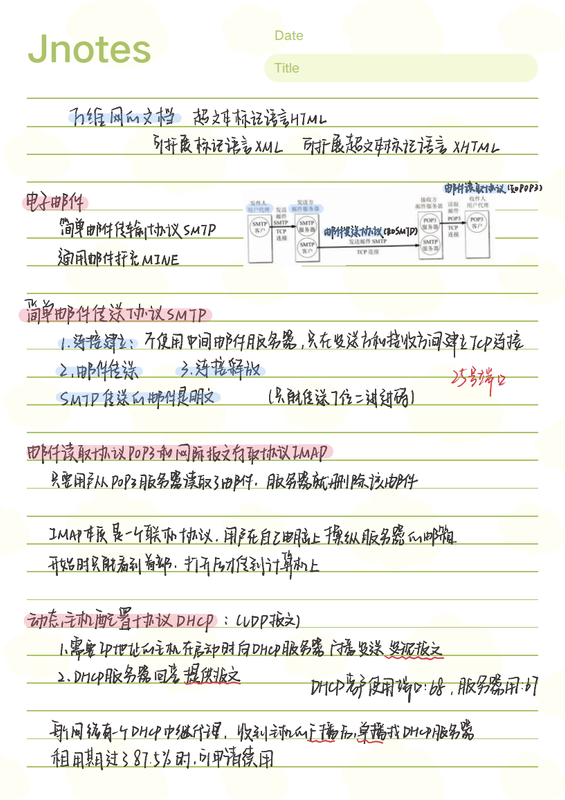 Jnotes
Date
Title
万维网的文档 超文本标记语言HTML
可扩展标记语言XML 可扩展超文本标记语言 XHTML
电子邮件
简单邮件传输协议SMTP
通用邮件扩充MINE
邮件读取协议(如POP3)
发件人
用户代理
SMTP
客户
发送
邮件
SMTP
TCP
连接
发送方
邮件服务器
SMTP
服务器
SMTP
客户
邮件发送协议(如SMTP)
发送邮件 SMTP
TCP 连接
接收方
邮件服务器
POP3
服务器
SMTP
服务器
读取
邮件
POP3
TCP
连接
收件人
用户代理
POP3
客户
简单邮件传送协议SMTP
1.连接建立: 不使用中间邮件服务器,只在发送方和接收方间建立TCP连接
2.邮件传送 3.连接释放
25号端口
SMTP传送的邮件是明文 (只能传送7位二进制码)
邮件读取协议POP3和网际报文存取协议IMAP
只要用户从POP3服务器读取了邮件,服务器就删除该邮件
IMAP本质是一个联机协议,用户在自己电脑上操纵服务器的邮箱
开始时只能看到首部,打开后才传到计算机上
动态主机配置协议DHCP :(UDP报文)
1.需要IP地址的主机在启动时向DHCP服务器广播发送发现报文
2.DHCP服务器回答提供报文
DHCP客户使用端口:68,服务器用:67
每个网络有一个DHCP中继代理,收到主机的广播后,单播找DHCP服务器
租用期过了87.5%时,可申请续用